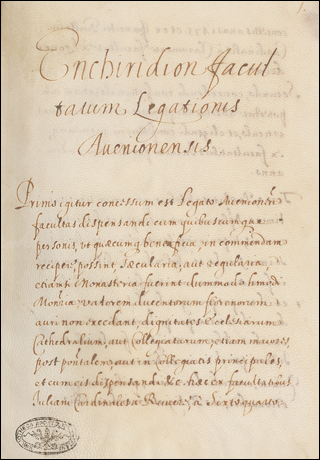 1.
Enchiridion facul
tatum Legationis
Avenionensis
Primo igitur concessum est Legato Avenionen.
facultas dispensandi cum quibuscunque
personis, ut quæcumq beneficia in commendam
recipere possint, sæcularia, aut regularia
etiamsi Monasteria fuerint dummodo
valorem ducentorum florenorum
auri non excedant, dignitates ecclesiarum
Cathedralium, aut Collegiatarum, etiam maiores,
post pontificalem, aut in Collegiatis principales,
et cum eis dispensandi &c. hæc ex facultatibus
Iuliani Cardinalis à Sixto quarto